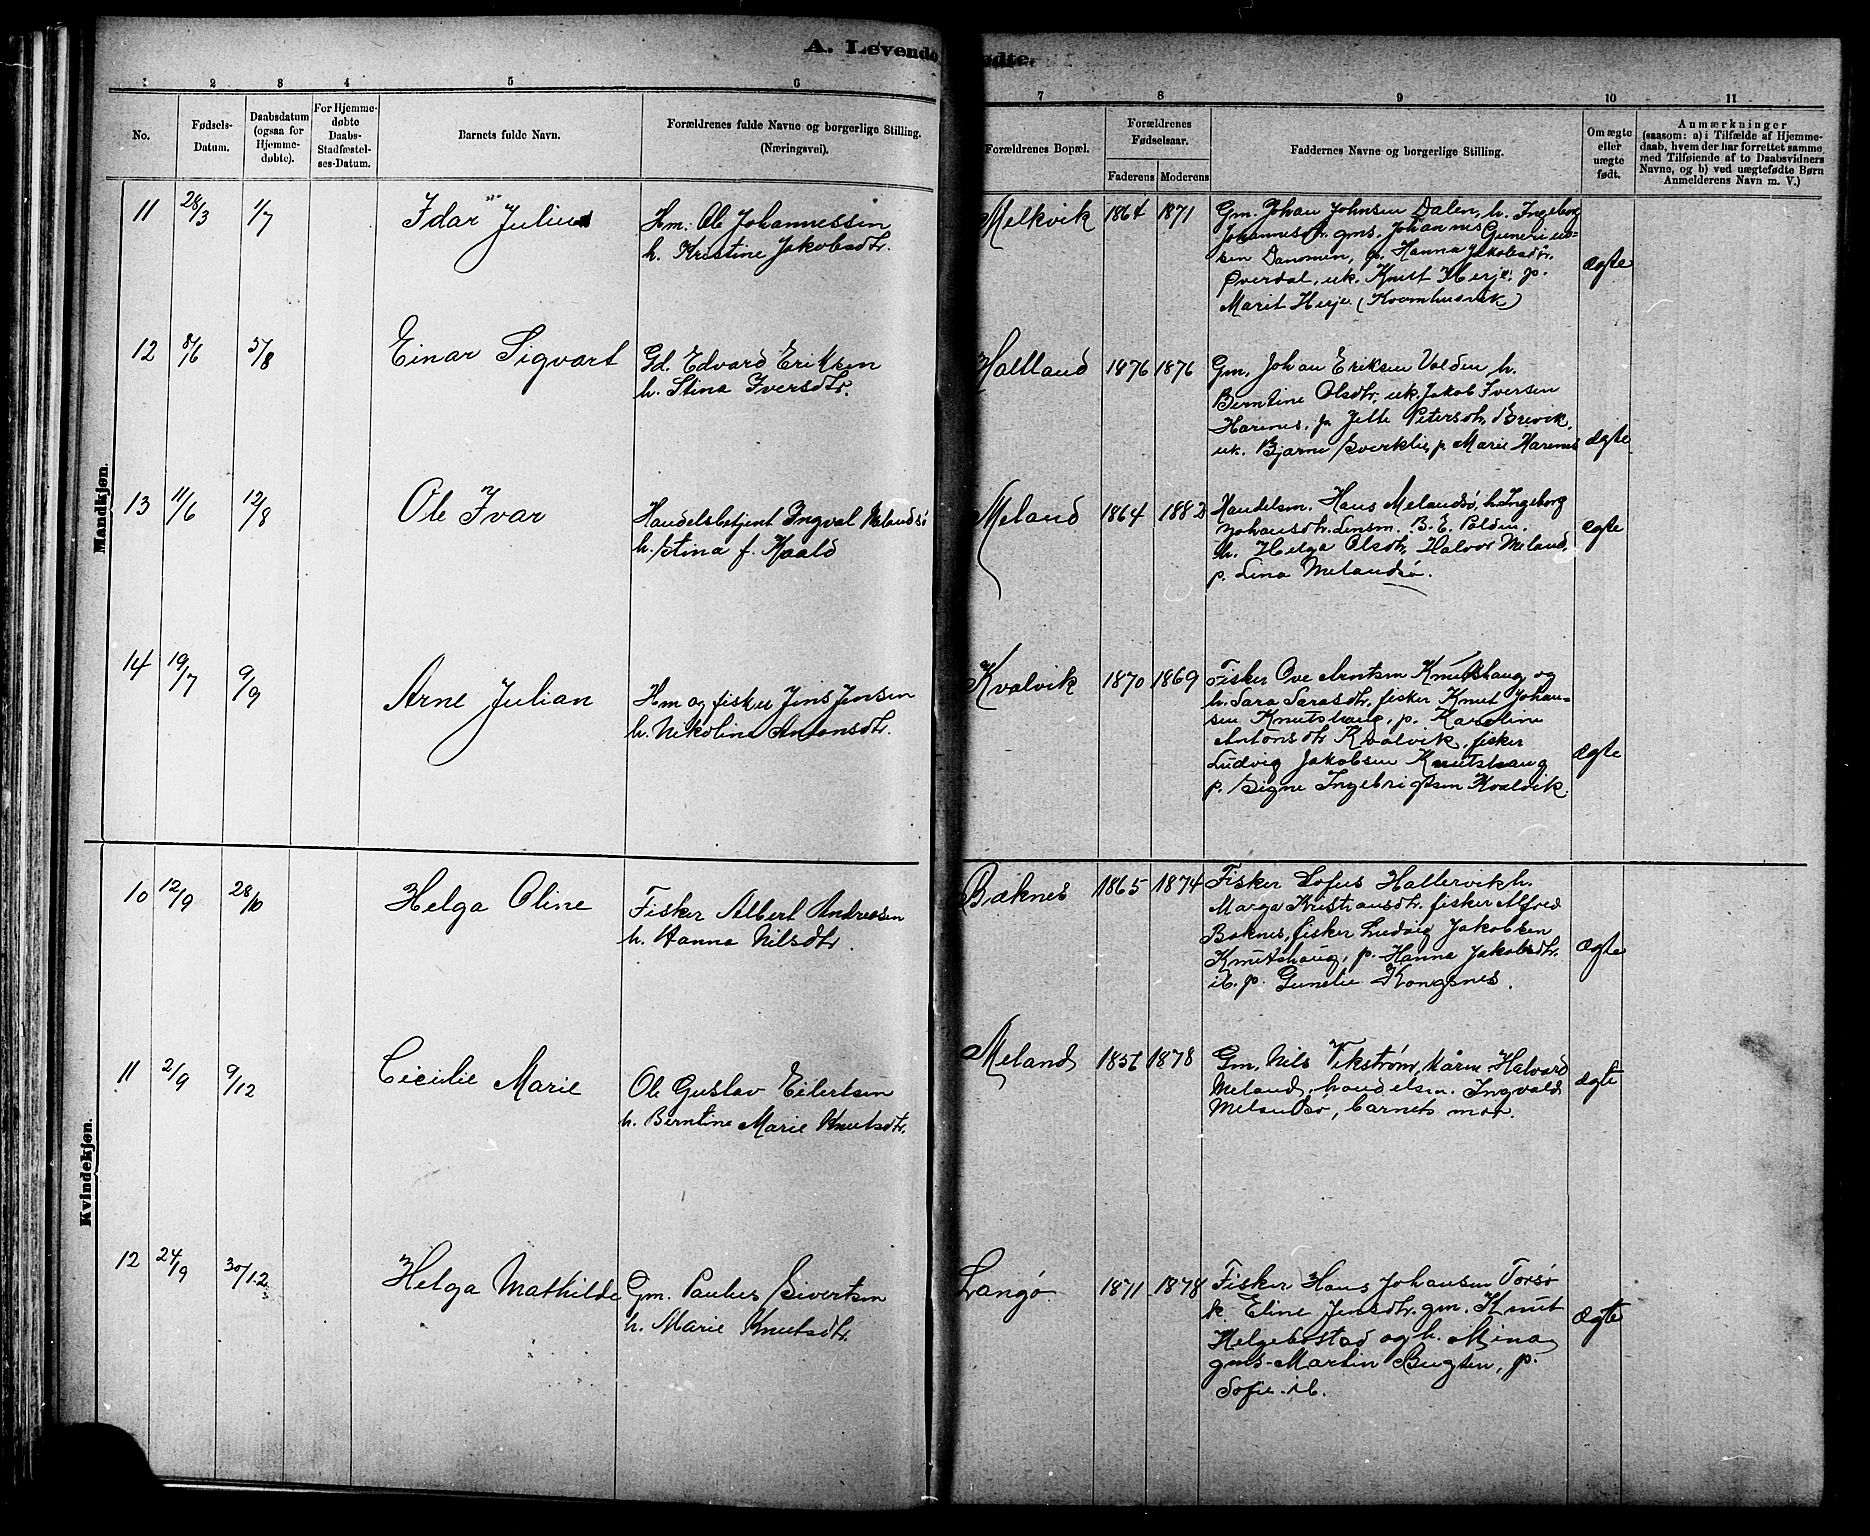 A. Levendefødte.
1 2 3 4 5 6 7 8 9 10 11
No.
Fødsels-
Datum.
Daabsdatum
(ogsaa for
Hjemme-
døbte).
For Hjemme-
døbte
Daabs-
Stadfæstel-
ses-Datum.
Barnets fulde Navn.
Forældrenes fulde Navne og borgerlige Stilling.
(Næringsvei).
Forældrenes Bopæl.
Forældrenes
Fødselsaar.
Faderens Moderens
Faddernes Navne og borgerlige Stilling.
Om ægte
eller
uægte
født.
Anmærkninger
(saasom: a) i Tilfælde af Hjemme-
daab, hvem der har forrettet samme
med Tilføiende af to Daabsvidners
Navne, og b) ved uægtefødte Børn
Anmelderens Navn m. V.)
Mandkjøn.
11 28/3 1/7 Idar Julius
Hm. Ole Johannessen
h. Kristine Jakobsdtr.
Melkvik 1864 1871
Gm. Johan Johnsen Dalen, h. Ingeborg
Johannesdtr. gms. Johannes Guneri us=
sen Danomen, p. Hanna Jakobsdtr.
Øverdal, uk. Knut Herje p.
Marit Herje (Kvernhusvik)
ægte
12 8/6 5/8 Einar Sigvart
Gd. Edvard Eriksen
h. Stina Iversdtr.
Haltland 1876 1876
Gm. Johan Eriksen Valden h.
Berntine Olsdtr. uk. Jakob Iversen
Harenes, p. Jette Petersdtr. Brevik.
uk. Bjarne Sverklie, p. Marie Harenes
ægte
13 11/6 12/8 Ole Ivar
Handelsbetjent Ingval Melandsø
h. Stina f. Kaald
Meland 1864 1882
Handelsm. Hans Melandsø, h. Ingeborg
Johansdtr. Lensm. B. E. Polden.
h. Helga Olsdtr, Halvor Meland,
p. Lina Melandsø.
ægte
14 19/7 9/9 Arne Julian
Hm og fisker Jens Jensen
h. Nikoline Antonsdtr.
Kvalvik 1870 1869
Fisker Ove Arntsen Knutshaug og
h. Sara Larsdtr. fisker Knut Johan-
sen Knutshaug, p. Karoline
Antonsdtr Kvalvik, fisker
Ludvig Jakobsen Knutshaug
p. Signe Ingebrigtsen Kvalvik.
ægte
Kvindekjøn.
10 12/9 28/10 Helga Oline
Fisker Albert Andreasen
h. Hanna Nilsdtr.
Bæknes 1865 1874
Fisker Lofus Hallervik h.
Marga Kristiansdtr. fisker Alfred
Boknes, fisker Ludvig Jakobsen
Knutshaug, p. Hanna Jakobsdtr.
ib. p. Gunelie Kongsnes.
ægte
11 2/9 9/12 Cecilie Marie
Ole Gustav Eilertsen
h. Berntine Marie Knutsdtr.
Meland 1856 1878
Gm. Nils Vikstrøm, Maren Halvard
Meland, handelsm. Ingvald
Melandsø, barnets mor.
ægte
12 24/9 30/12 Helga Mathilde
Gm. Paulus Sivertsen
h. Marie Knutsdtr.
Langø 1871 1878
Fisker Hans Johansen Torsø
h. Eline Jensdtr. gm. Knut
Helgebostad og h. Mina
gms. Martin Bugten, p.
Sofie ib.
ægte